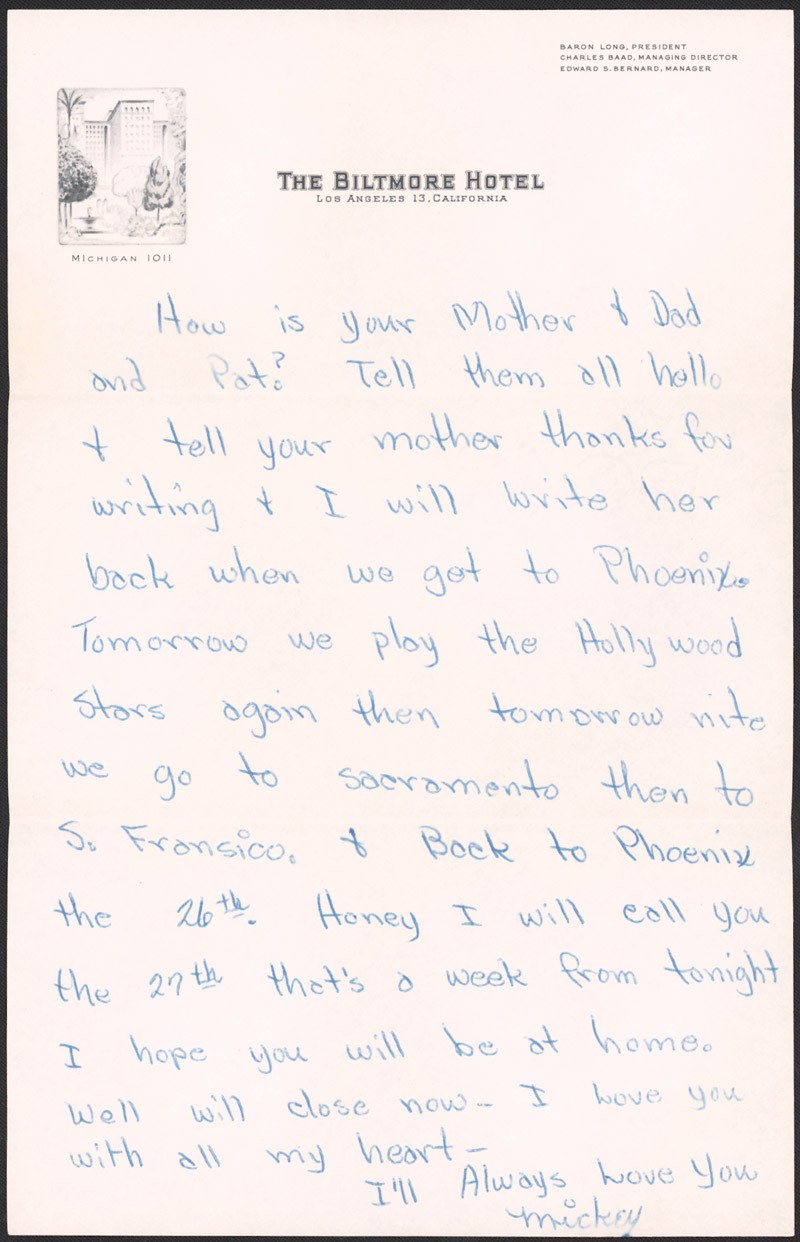 BARON LONG, PRESIDENT
CHARLES BAAD, MANAGING DIRECTOR
EDWARD S. BERNARD, MANAGER
THE BILTMORE HOTEL
LOS ANGELES 13, CALIFORNIA
MICHIGAN 1011
How is your Mother & Dad
and Pat? Tell them all hello
& tell your mother thanks for
writing & I will write her
back when we get to Phoenix.
Tomorrow we play the Hollywood
Stars again then tomorrow nite
we go to sacramento then to
S. Fransico. & Back to Phoenix
the 26th. Honey I will call you
the 27th that's a week from tonight
I hope you will be at home.
Well will close now- I Love you
with all my heart-
I'll Always Love You
Mickey